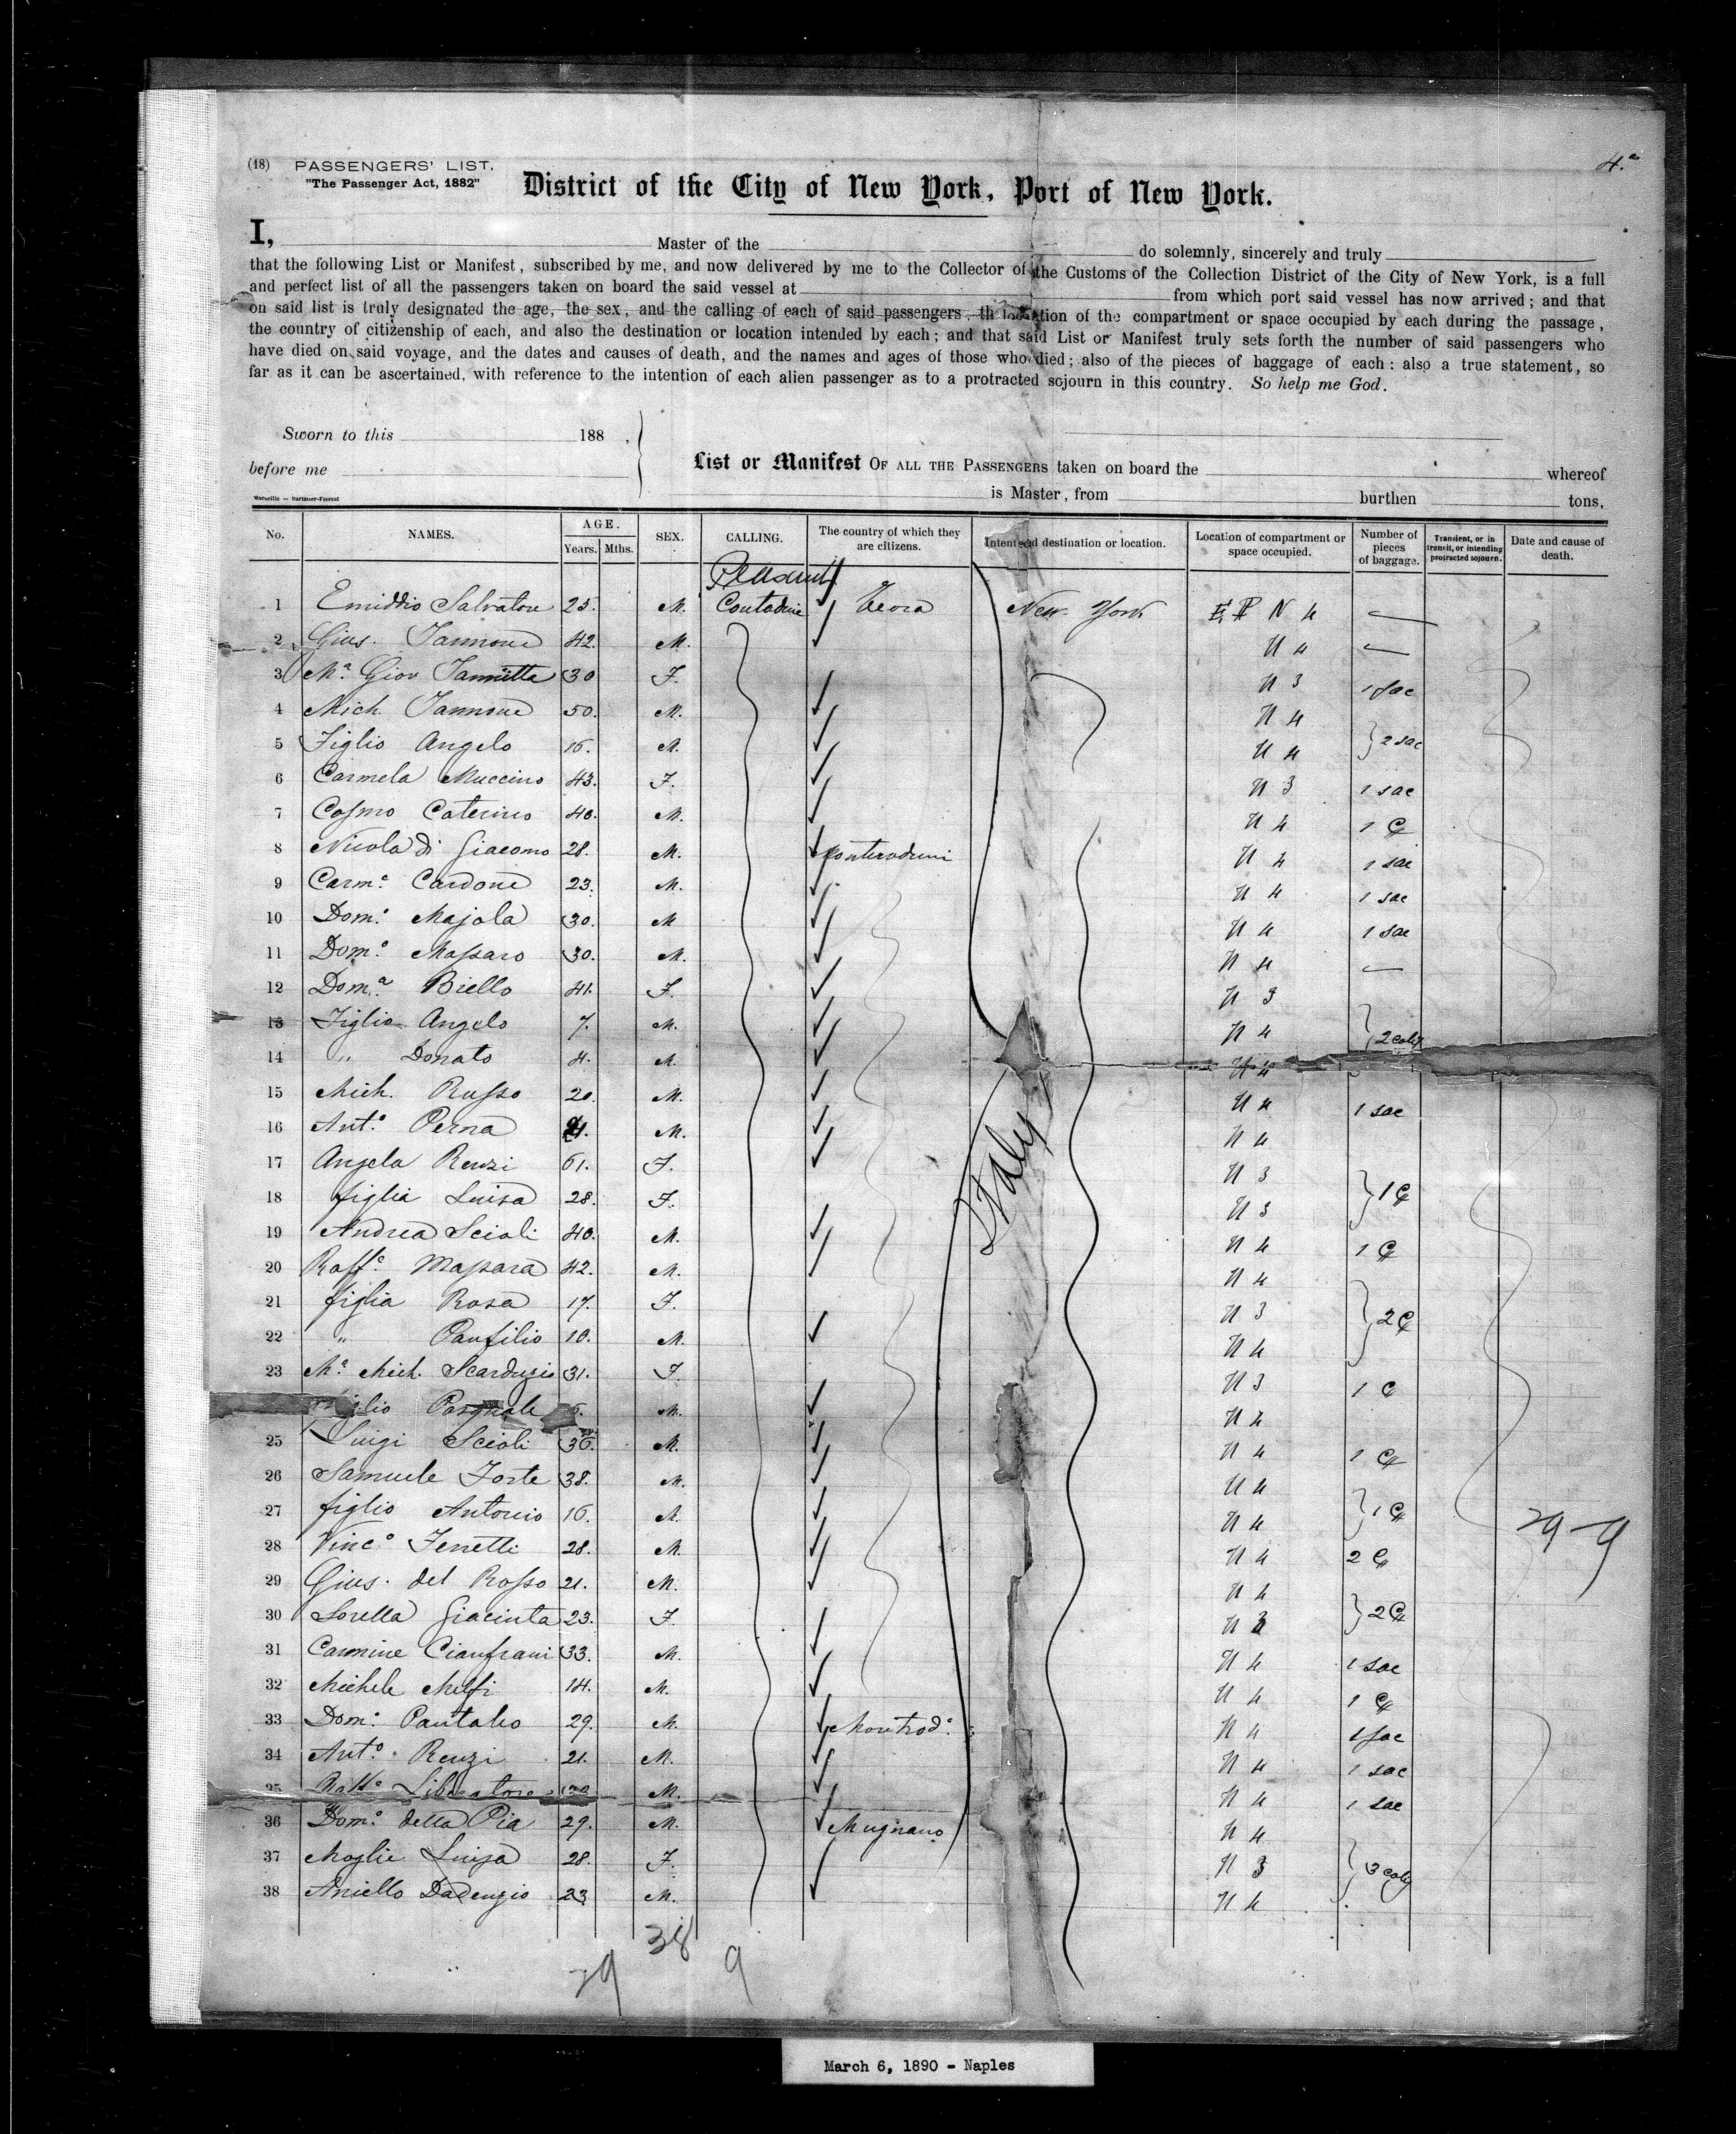 4.ª
(18) PASSENGERS' LIST.
"The Passenger Act, 1882"
District of the City of New York, Port of New York.
I, Master of the do solemnly, sincerely and truly
that the following List or Manifest, subscribed by me, and now delivered by me to the Collector of the Customs of the Collection District of the City of New York, is a full
and perfect list of all the passengers taken on board the said vessel at from which port said vessel has now arrived; and that
on said list is truly designated the age, the sex, and the calling of each of said passengers, th location of the compartment or space occupied by each during the passage,
the country of citizenship of each, and also the destination or location intended by each; and that said List or Manifest truly sets forth the number of said passengers who
have died on said voyage, and the dates and causes of death, and the names and ages of those who died; also of the pieces of baggage of each: also a true statement, so
far as it can be ascertained, with reference to the intention of each alien passenger as to a protracted sojourn in this country. So help me God.
Sworn to this 188 ,
before me
List or Manifest OF ALL THE PASSENGERS taken on board the whereof
is Master, from burthen tons,
No. NAMES. AGE. Years. Mths. SEX. CALLING. The country of which they are citizens. Intented destination or location. Location of compartment or space occupied. Number of pieces of baggage. Transient, or in transit, or intending protracted sojourn. Date and cause of death.
Peasant
1 Emiddio Salvatore 25. M. Contadini New York N 4
2 Gius. Iannone 42. M. N 4
3 M.ª Giov Iannitta 30 F. N 3 1 sac
4 Mich. Iannone 50. M. N 4
5 Figlio Angelo 16. M. N 4 2 sac
6 Carmela Muccino 43. F. N 3 1 sac
7 Cosmo Caterino 40. M. N 4 1 C
8 Nicola di Giacomo 28. M. N 4 1 sac
9 Carm.e Cardone 23. M. N 4 1 sac
10 Dom.o Majola 30. M N 4 1 sac
11 Dom.o Massaro 30. M. N 4
12 Dom.a Biello 41. F. N 3
13 Figlio Angelo 7. M. N 4 2 coly
14 " Donato 4. M. N 4
15 Mich. Russo 20. M. N 4 1 sac
16 Ant.o Perna M. N 4
17 Angela Renzi 61. F. N 3
18 figlia Luisa 28. F. N 3 1 C
19 Andrea Scioli 40. M. N 4 1 C
20 Raff.e Massara 42. M. N 4
21 figlia Rosa 17. F. N 3 2 C
22 " Panfilio 10. M. N 4
23 M.ª Mich. Scarduzio 31. F. N 3 1 C
Figlio Pasquale M. N 4
25 Luigi Scioli 36. M. N 4 1 C
26 Samuele Forte 38. M. N 4
27 figlio Antonio 16. M. N 4 1 C
28 Vinc.o Ferretti 28. M. N 4 2 C
29 Gius. del Rosso 21. M. N 4
30 Sorella Giacinta 23. F. N 3 2 C
31 Carmine Cianfrani 33. M. N 4 1 sac
32 Michele Melfi 14. M. N 4 1 C
33 Dom.o Pantaleo 29. M. Montrod.i N 4 1 sac
34 Ant.o Renzi 21. M. N 4 1 sac
35 Raff.e Liberatore M. N 4 1 sac
36 Dom.o della Pia 29. M. Mugnano N 4
37 Moglie Luisa 28. F. N 3 3 coly
38 Aniello 23 M. N 4
Italy
29-9
38
29 9
Marseille — Bartmoer-Fesnat
March 6, 1890 - Naples